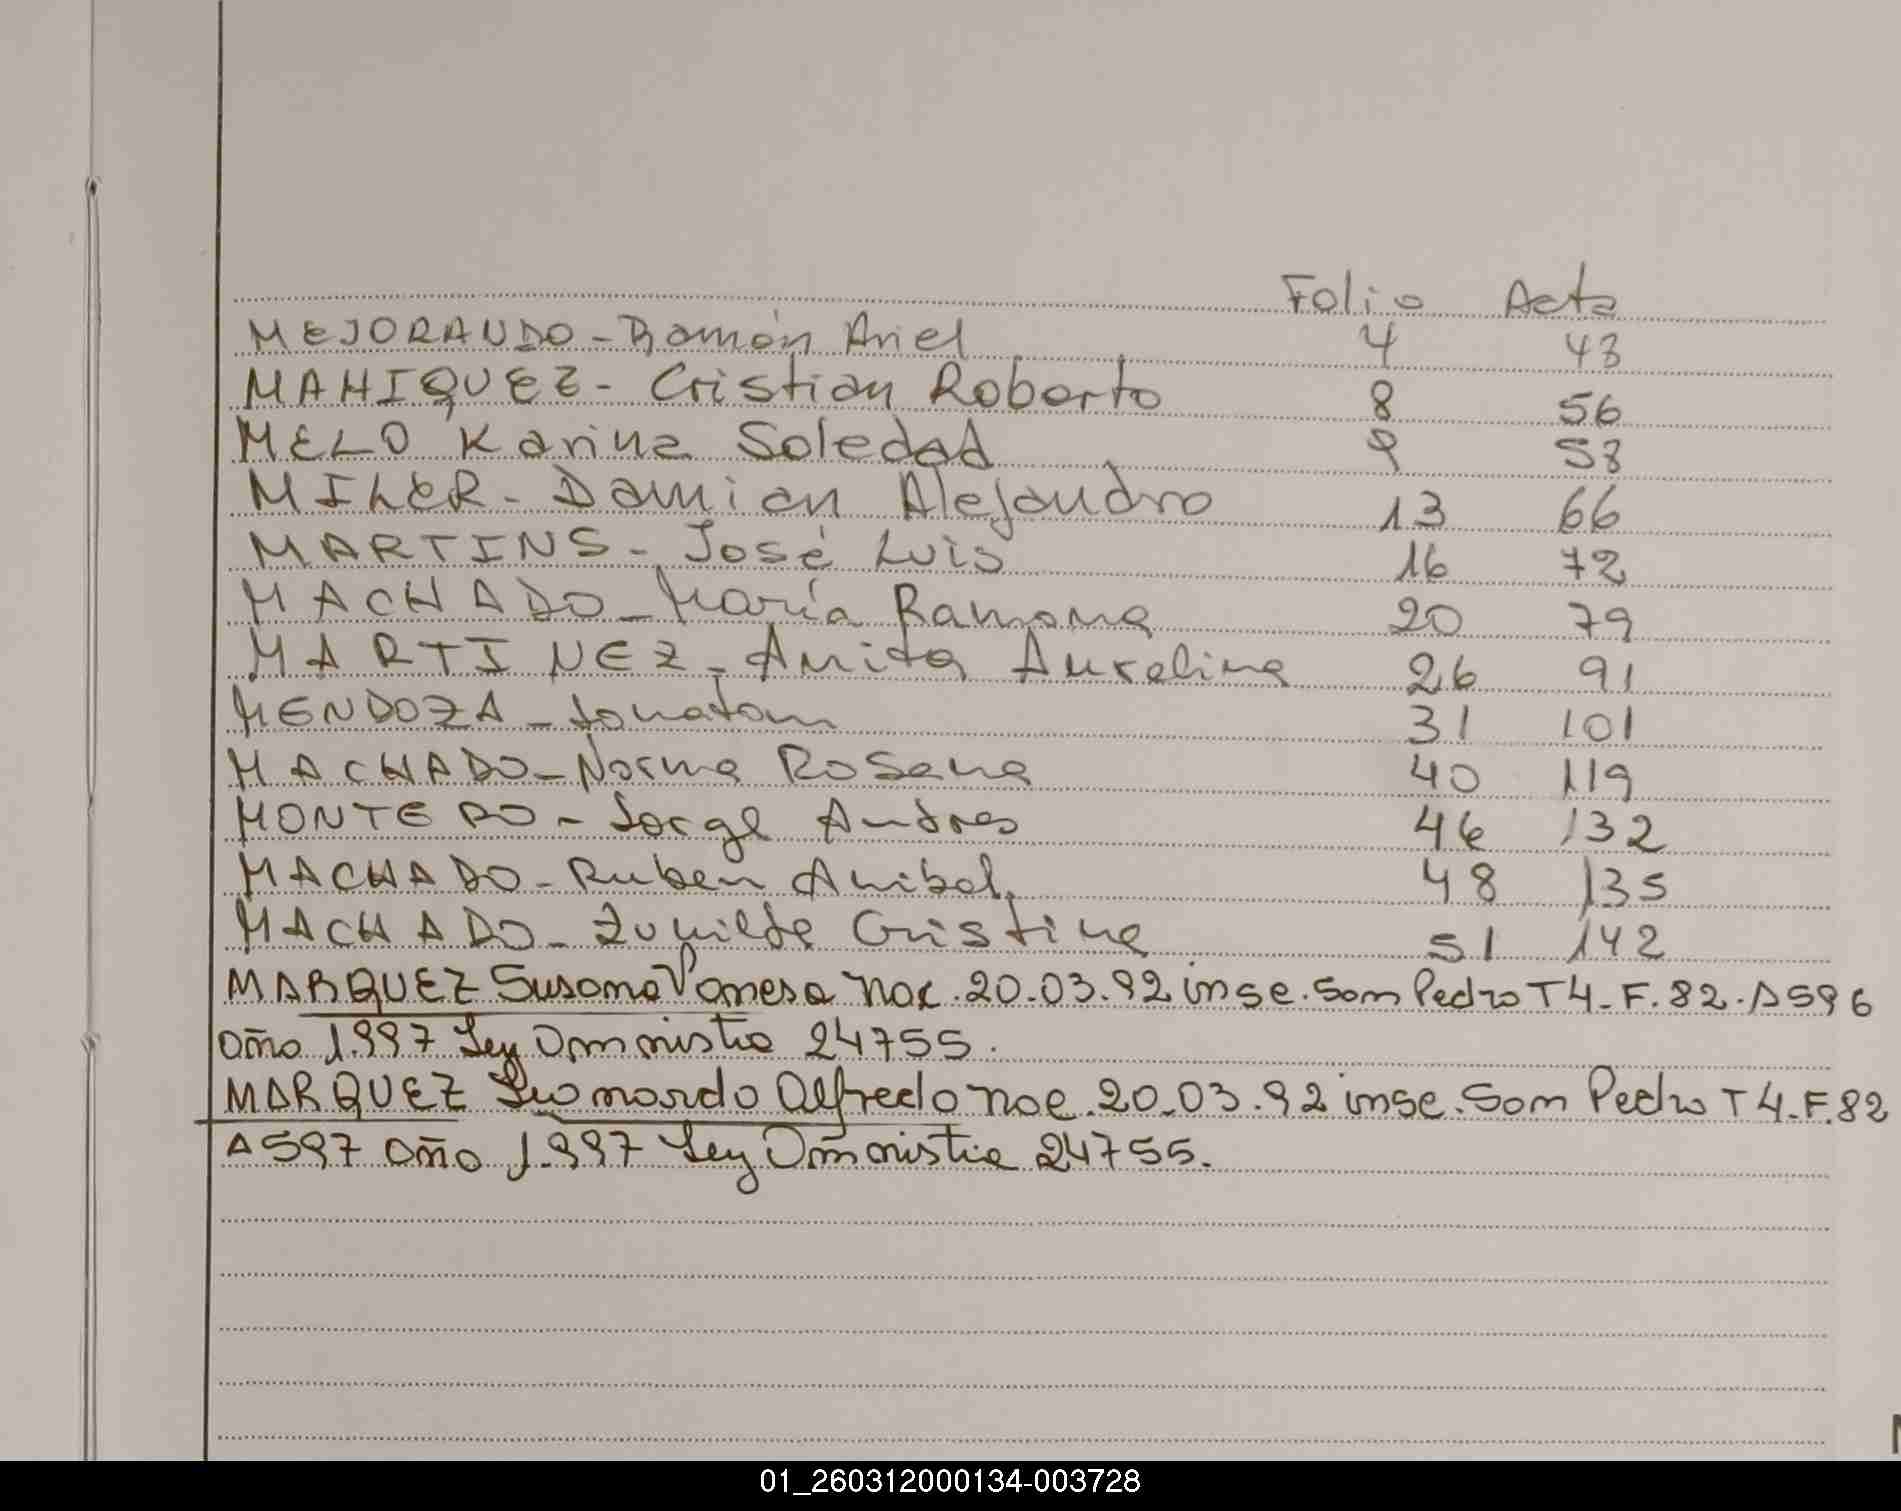 Folio Acta
MEJORANDO - Ramón Ariel 4 43
MAHIQUEZ - Cristian Roberto 8 56
MELO Karina Soledad 9 58
MILER - Damian Alejandro 13 66
MARTINS - José Luis 16 72
MACHADO - María Ramona 20 79
MARTINEZ - Anita Aurelina 26 91
MENDOZA - Jonatan 31 101
MACHADO - Norma Rosana 40 119
MONTERO - Jorge Andres 46 132
MACHADO - Ruben Anibal 48 135
MACHADO - Zunilda Cristina 51 142
MARQUEZ Susana Vanesa nac. 20.03.92 insc. San Pedro T4-F.82.A596
año 1.997 Ley Amnistia 24755.
MARQUEZ Leonardo Alfredo nac. 20.03.92 insc. San Pedro T4-F.82
A597 año 1.997 Ley Amnistia 24755.
01_260312000134-003728